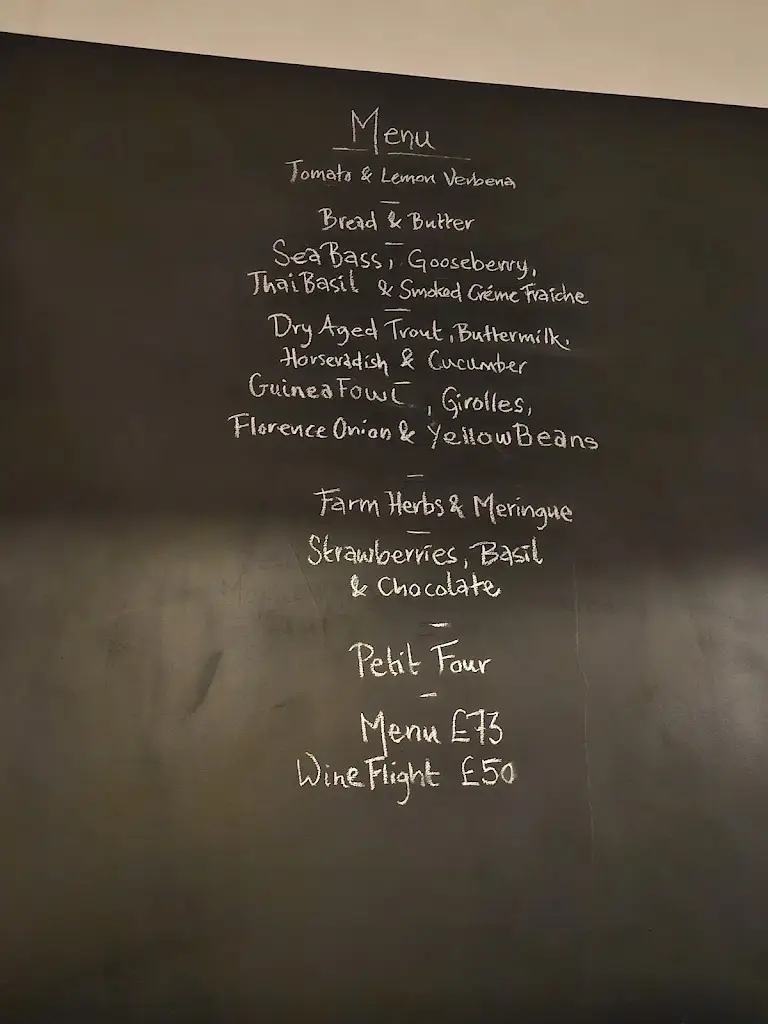 Menu
Tomato & Lemon Verbena
—
Bread & Butter
—
Sea Bass, Gooseberry,
Thai Basil & Smoked Créme Fraiche
—
Dry Aged Trout, Buttermilk,
Horseradish & Cucumber
Guinea Fowl, Girolles,
Florence Onion & Yellow Beans
—
Farm Herbs & Meringue
—
Strawberries, Basil
& Chocolate
—
Petit Four
—
Menu £73
Wine Flight £50